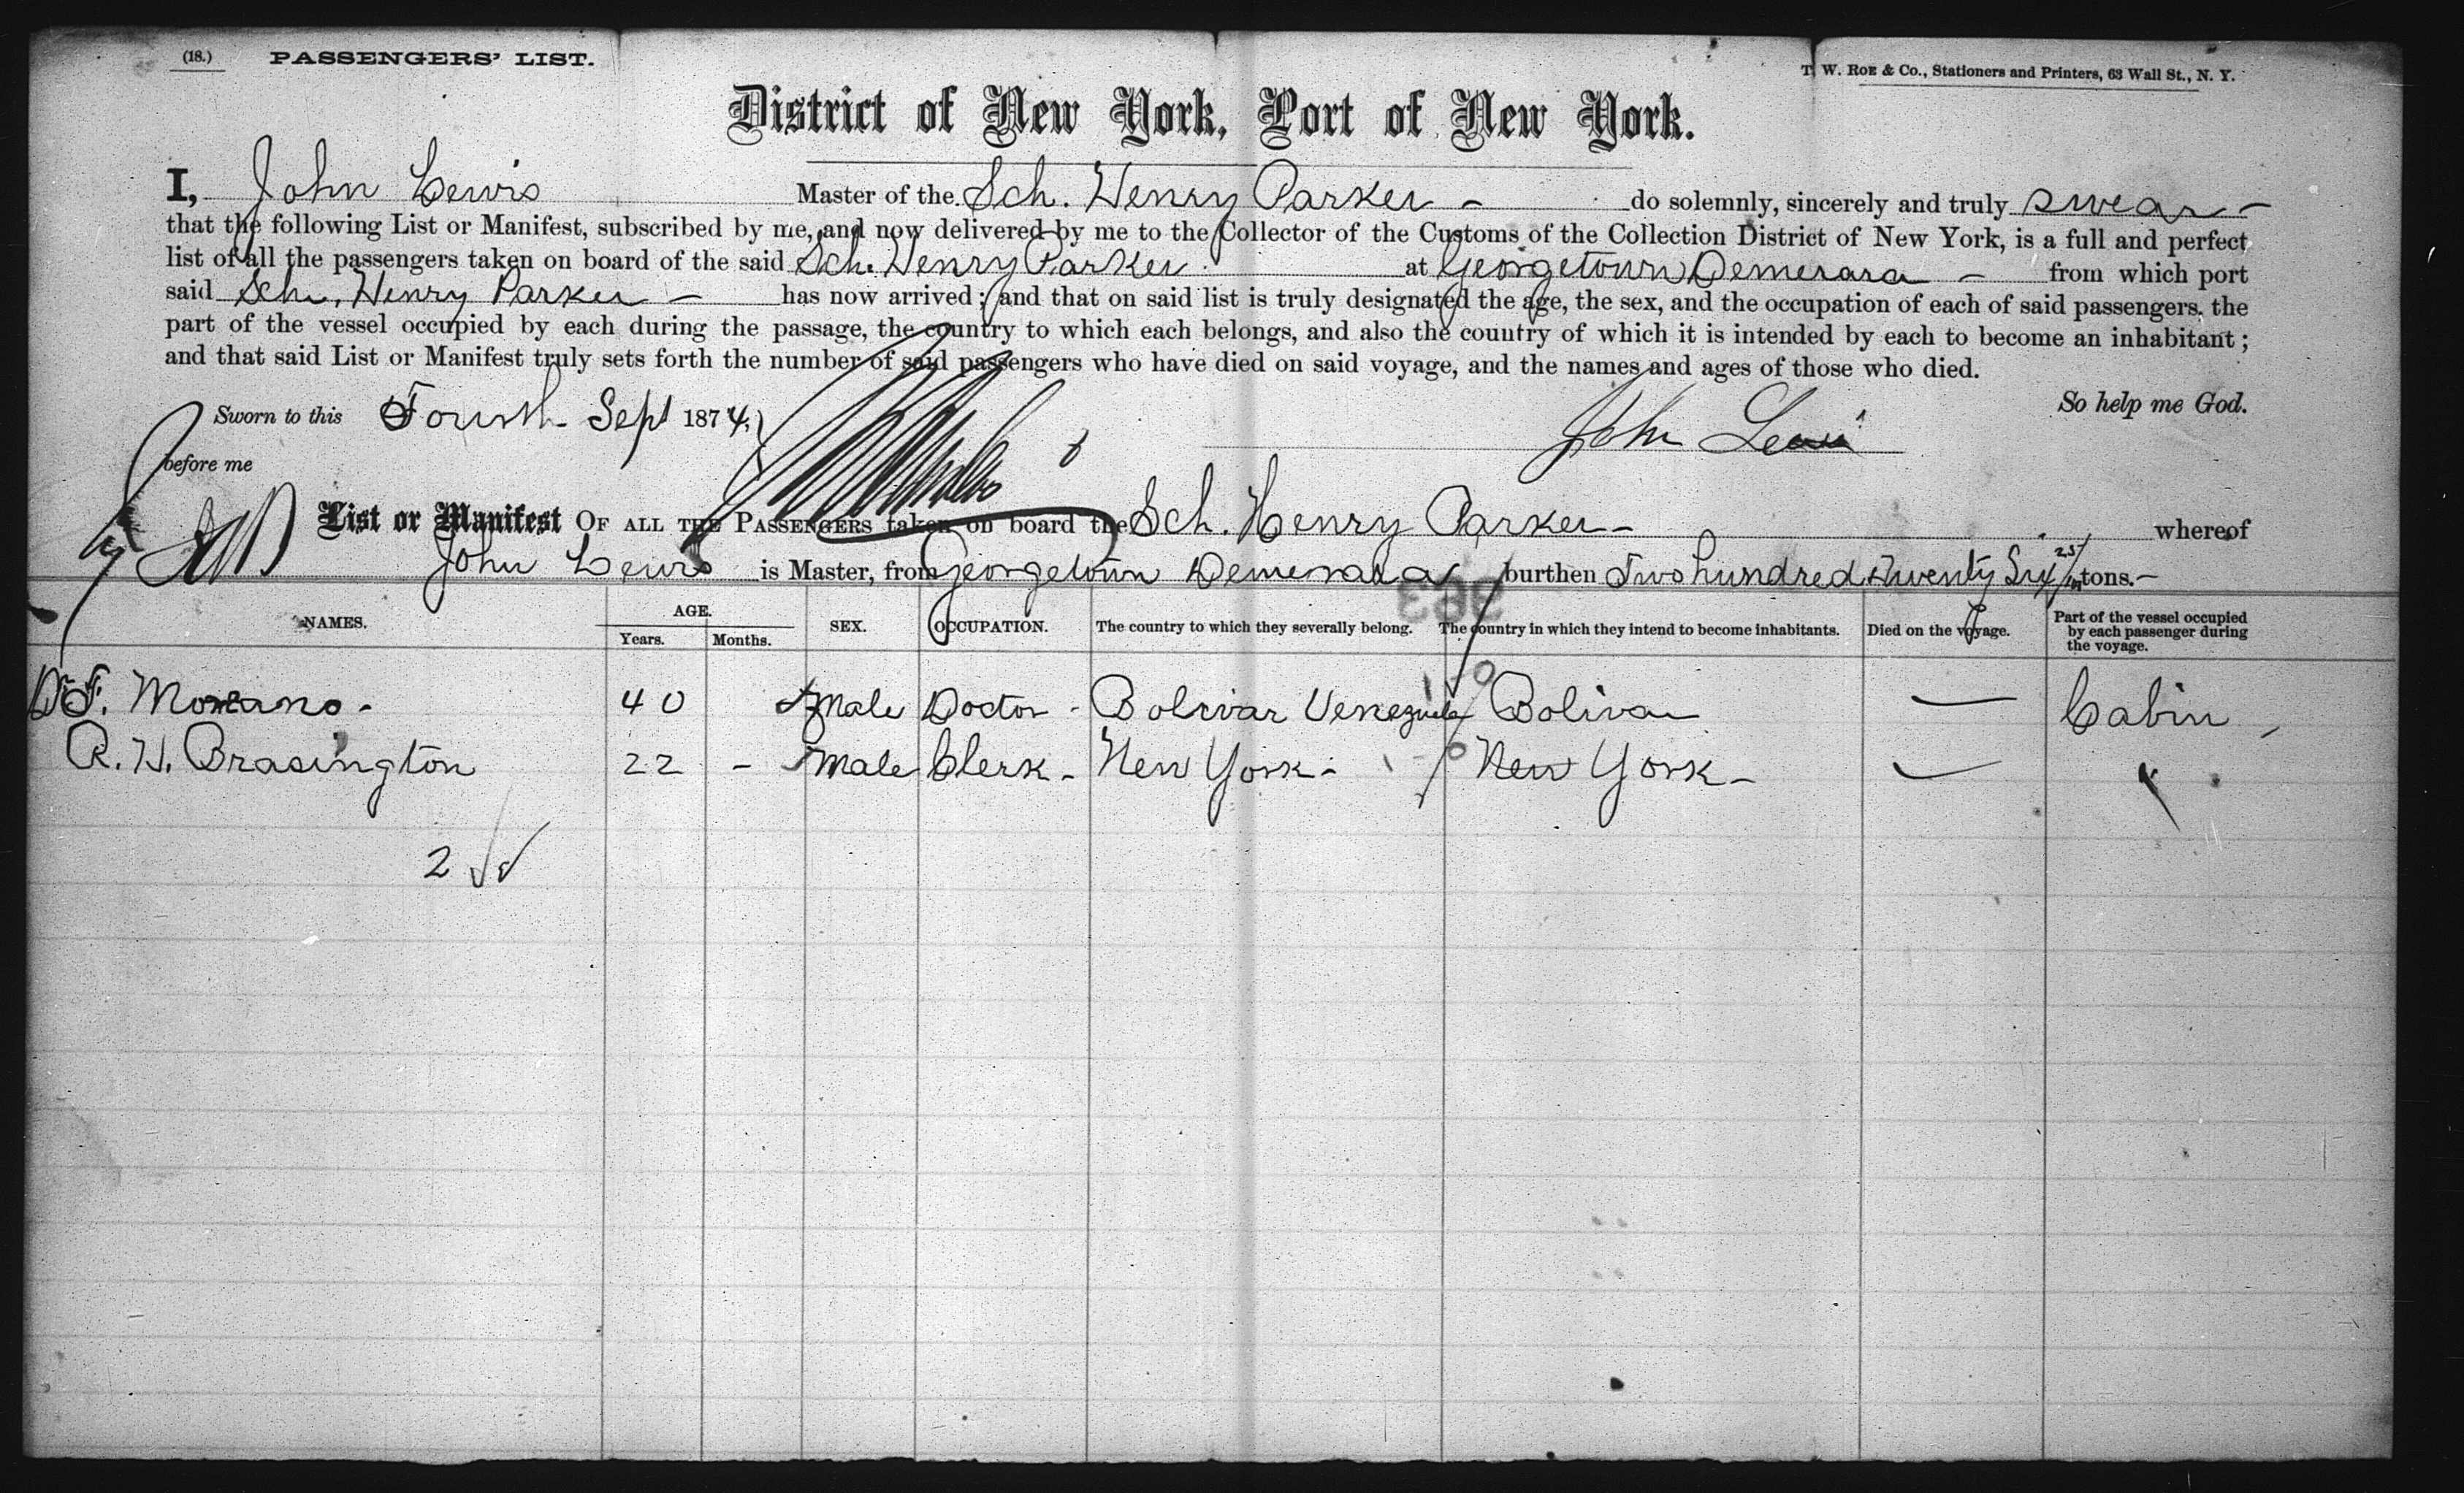 (18.) PASSENGERS' LIST. T. W. ROE & Co., Stationers and Printers, 63 Wall St., N. Y.
District of New York, Port of New York.
I, John Lewis Master of the Sch. Henry Parker - do solemnly, sincerely and truly swear -
that the following List or Manifest, subscribed by me, and now delivered by me to the Collector of the Customs of the Collection District of New York, is a full and perfect
list of all the passengers taken on board of the said Sch. Henry Parker at Georgetown Demerara - from which port
said Sch. Henry Parker - has now arrived; and that on said list is truly designated the age, the sex, and the occupation of each of said passengers, the
part of the vessel occupied by each during the passage, the country to which each belongs, and also the country of which it is intended by each to become an inhabitant;
and that said List or Manifest truly sets forth the number of said passengers who have died on said voyage, and the names and ages of those who died.
So help me God.
Sworn to this Fourth Sept 1874,
John Lewis
before me
List or Manifest OF ALL THE PASSENGERS taken on board the Sch. Henry Parker - whereof
John Lewis is Master, from Georgetown Demerara burthen Two hundred & twenty Six 25/100 tons. -
NAMES. AGE. Years. Months. SEX. OCCUPATION. The country to which they severally belong. The country in which they intend to become inhabitants. Died on the voyage. Part of the vessel occupied by each passenger during the voyage.
Dr. F. Moreano - 40 Male Doctor - Bolivar Venezuela Bolivar — Cabin
R. H. Brasington 22 - Male Clerk - New York - New York - — "
2